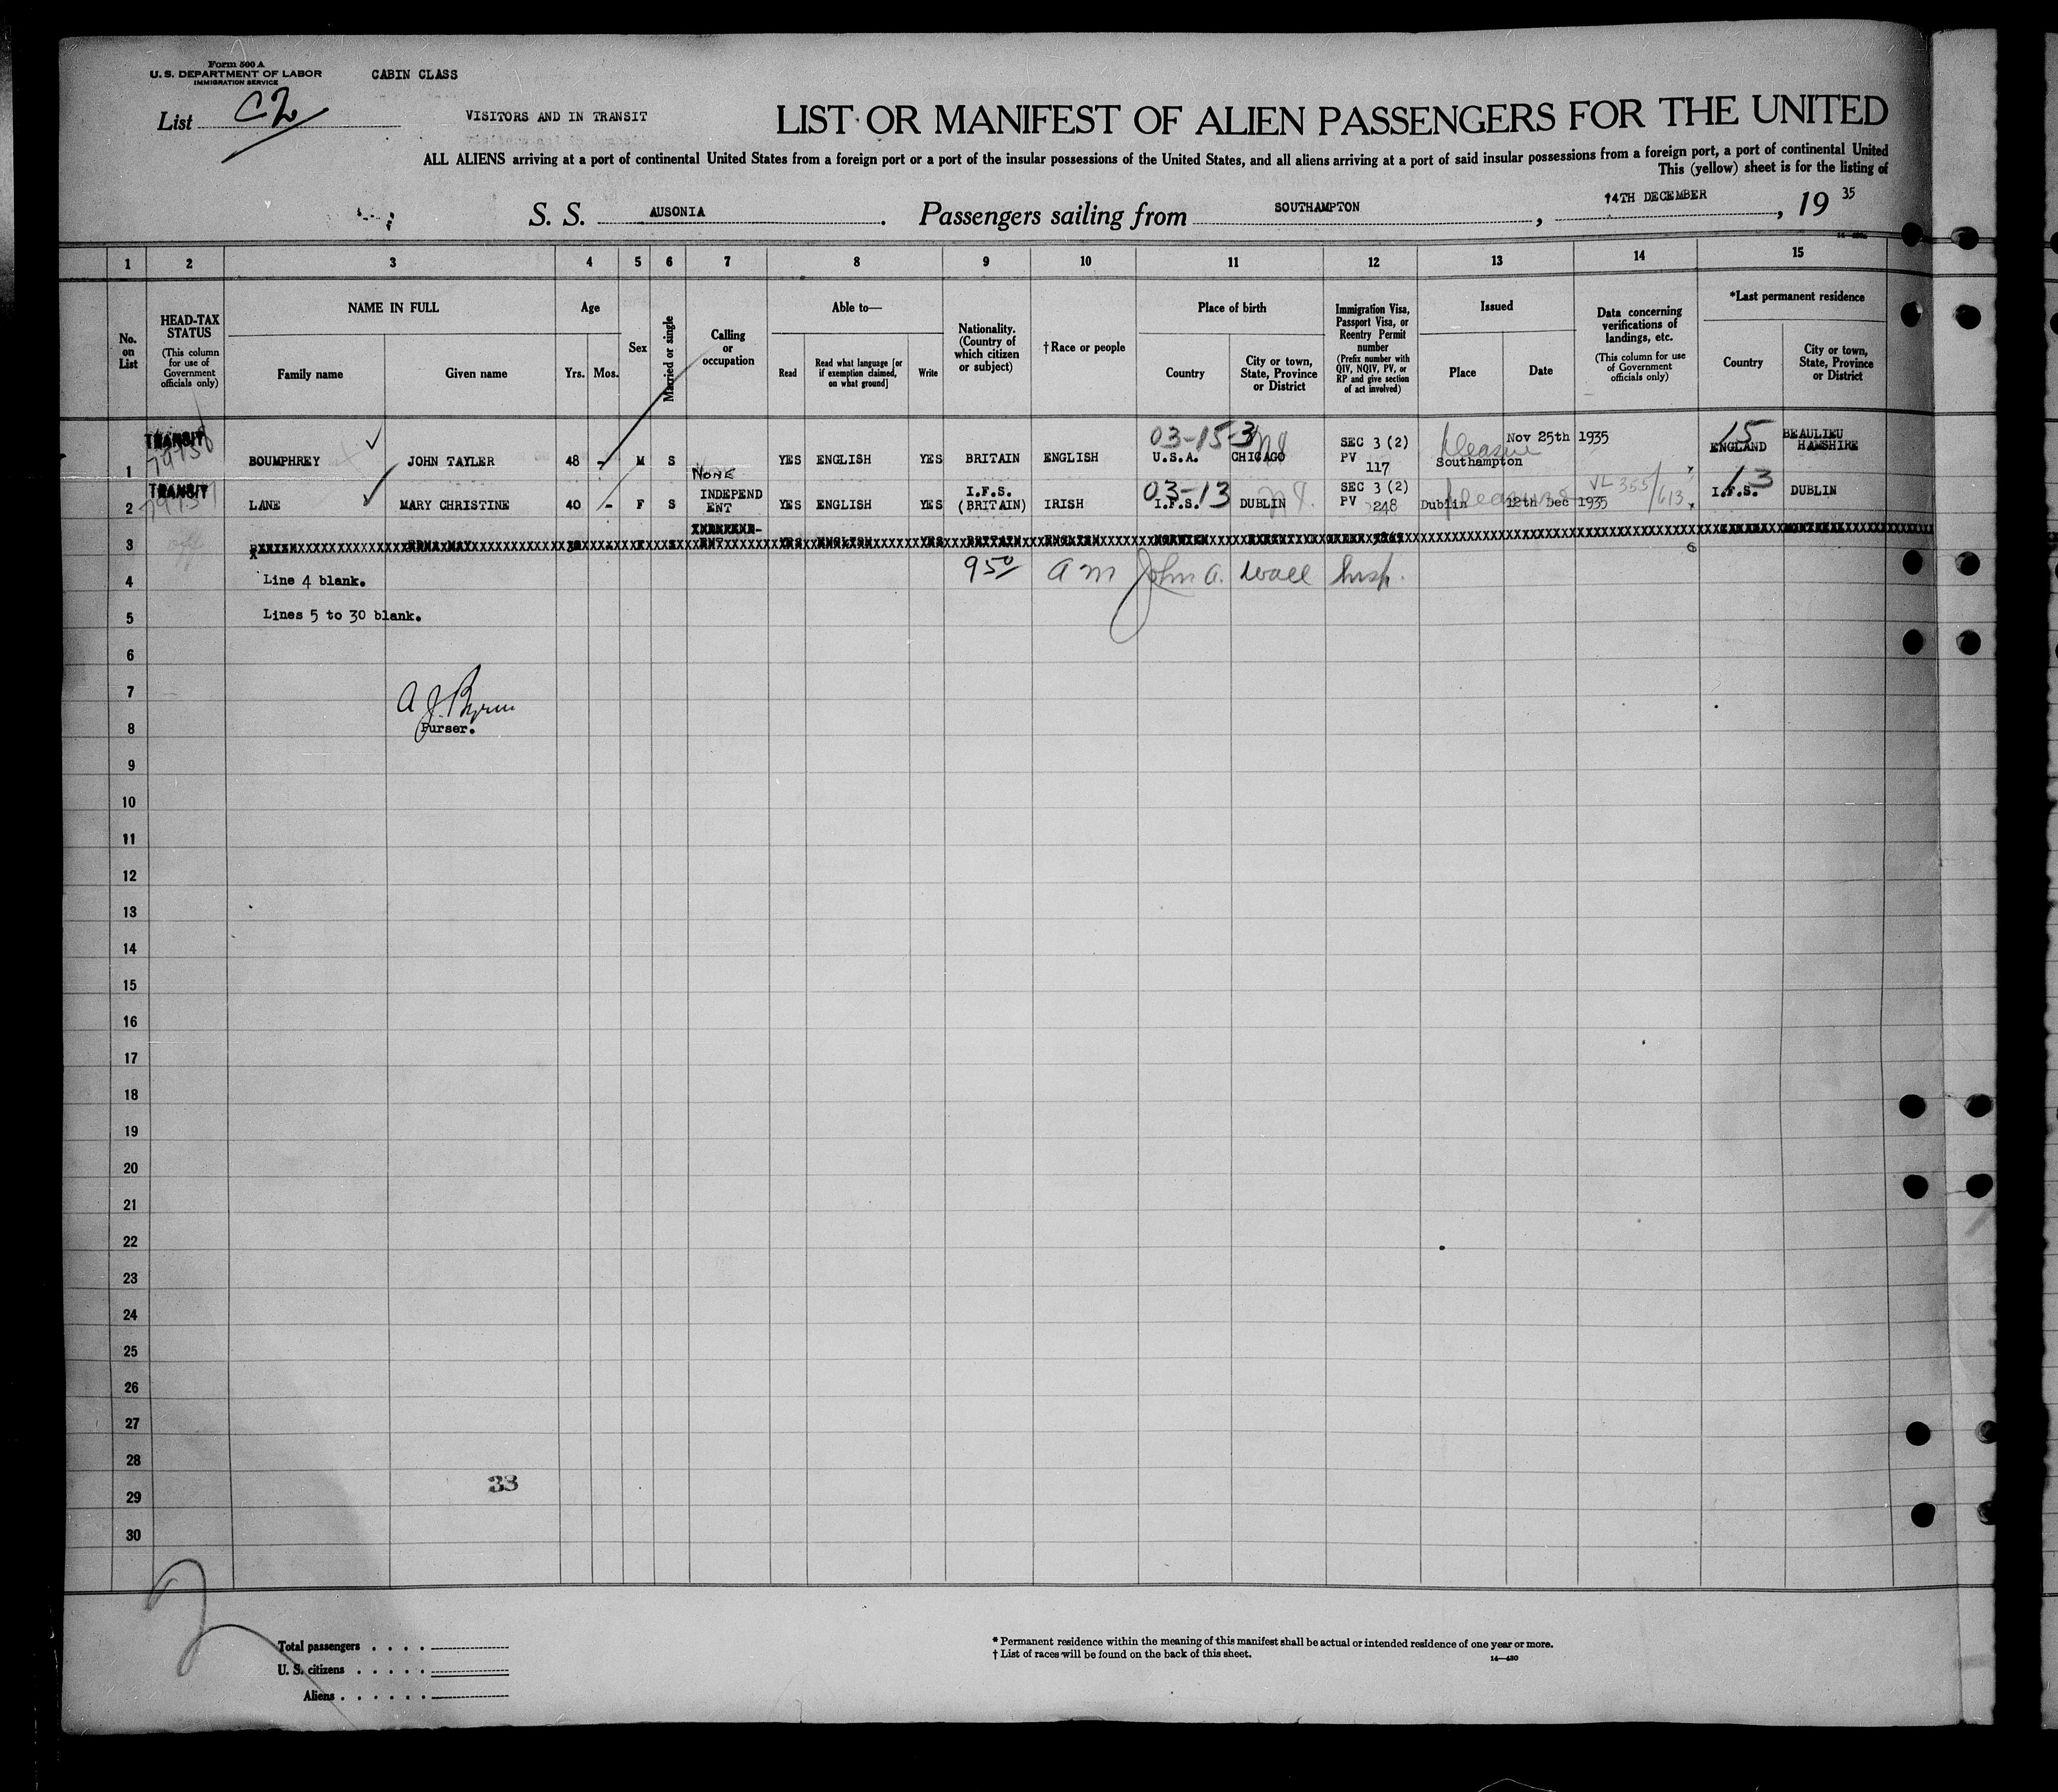 Form 500 A
U. S. DEPARTMENT OF LABOR
IMMIGRATION SERVICE
CABIN CLASS
List C2
VISITORS AND IN TRANSIT
LIST OR MANIFEST OF ALIEN PASSENGERS FOR THE UNITED
ALL ALIENS arriving at a port of continental United States from a foreign port or a port of the insular possessions of the United States, and all aliens arriving at a port of said insular possessions from a foreign port, a port of continental United
This (yellow) sheet is for the listing of
S. S. AUSONIA. Passengers sailing from SOUTHAMPTON, 14TH DECEMBER, 19 35
1 2 3 4 5 6 7 8 9 10 11 12 13 14 15
No. on List
HEAD-TAX STATUS
(This column for use of Government officials only)
NAME IN FULL
Family name
Given name
Age
Yrs. Mos.
Sex
Married or single
Calling or occupation
Able to—
Read
Read what language [or if exemption claimed, on what ground]
Write
Nationality. (Country of which citizen or subject)
†Race or people
Place of birth
Country
City or town, State, Province or District
Immigration Visa, Passport Visa, or Reentry Permit number
(Prefix number with QIV, NQIV, PV, or RP and give section of act involved)
Issued
Place
Date
Data concerning verifications of landings, etc.
(This column for use of Government officials only)
*Last permanent residence
Country
City or town, State, Province or District
TRANSIT
1 BOUMPHREY JOHN TAYLER 48 - M S NONE YES ENGLISH YES BRITAIN ENGLISH 03-15-3 U.S.A. CHICAGO SEC 3 (2) PV 117 Southampton Nov 25th 1935 15 ENGLAND BEAULIEU HAMSHIRE
TRANSIT
2 LANE MARY CHRISTINE 40 - F S INDEPEND ENT YES ENGLISH YES I.F.S. (BRITAIN) IRISH 03-13 I.F.S. DUBLIN SEC 3 (2) PV 248 Dublin 12th Dec 1935 VL 355/613 13 I.F.S. DUBLIN
3
950 am John A. Wall Insp.
4 Line 4 blank.
5 Lines 5 to 30 blank.
6
7
A J Byrne
8 Purser.
9
10
11
12
13
14
15
16
17
18
19
20
21
22
23
24
25
26
27
28
33
29
30
2
Total passengers . . . .
U. S. citizens . . . . .
Aliens . . . . . .
* Permanent residence within the meaning of this manifest shall be actual or intended residence of one year or more.
† List of races will be found on the back of this sheet.
14—430